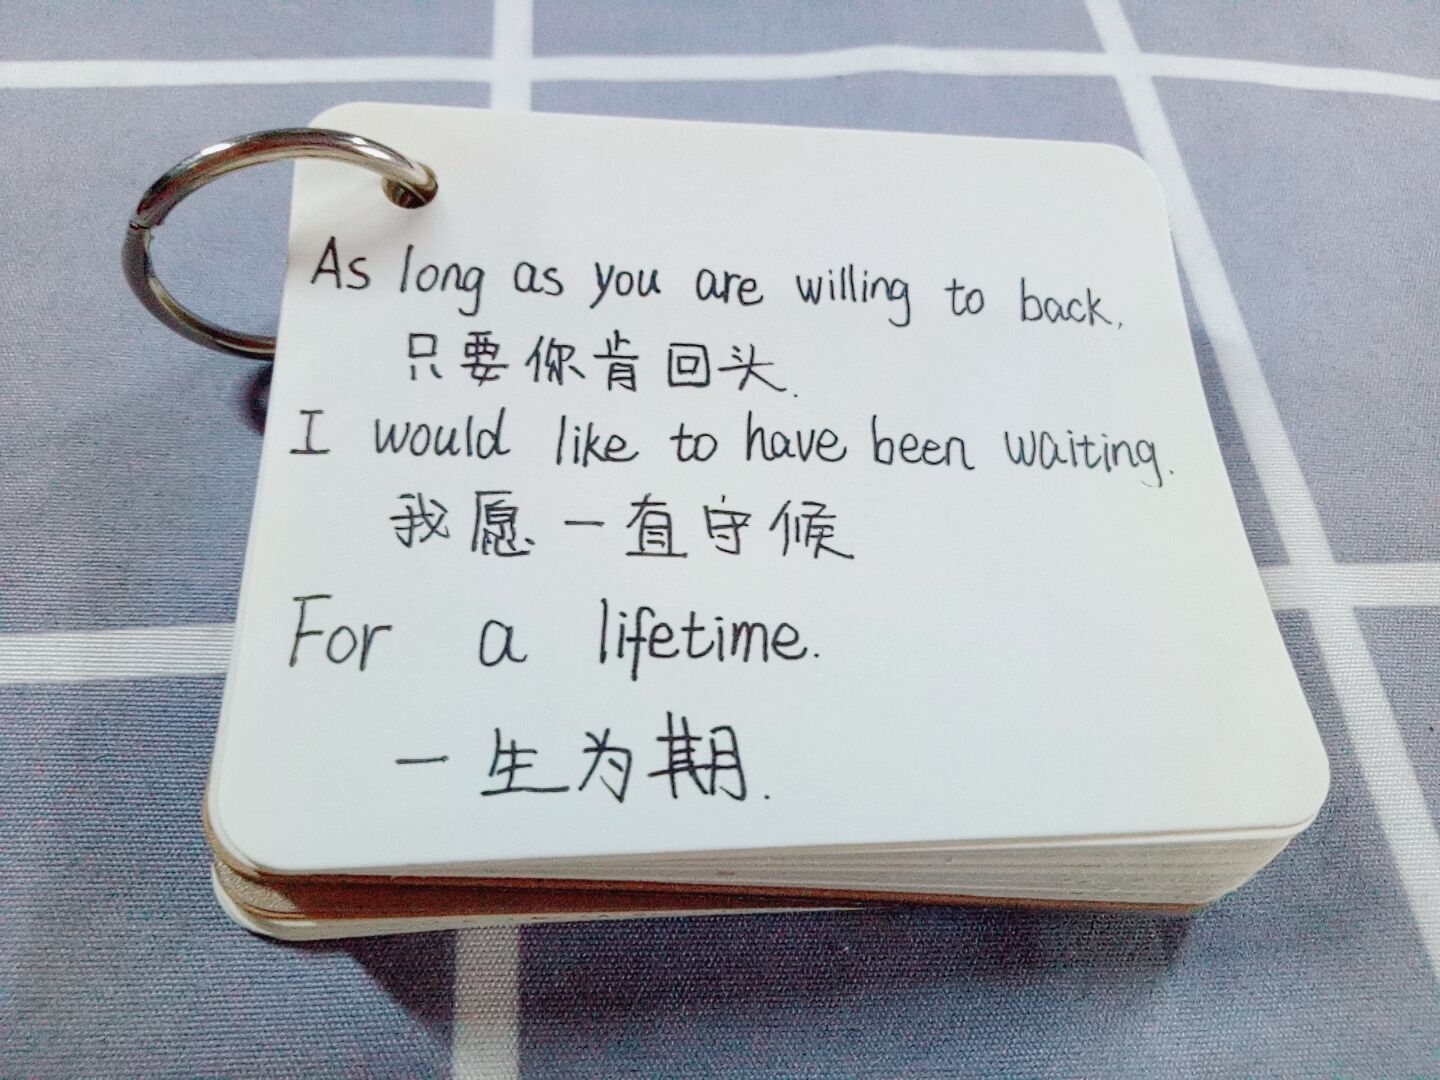 As long as you are willing to back,
只要你肯回头.
I would like to have been waiting.
我愿一直守候
For a lifetime.
一生为期.